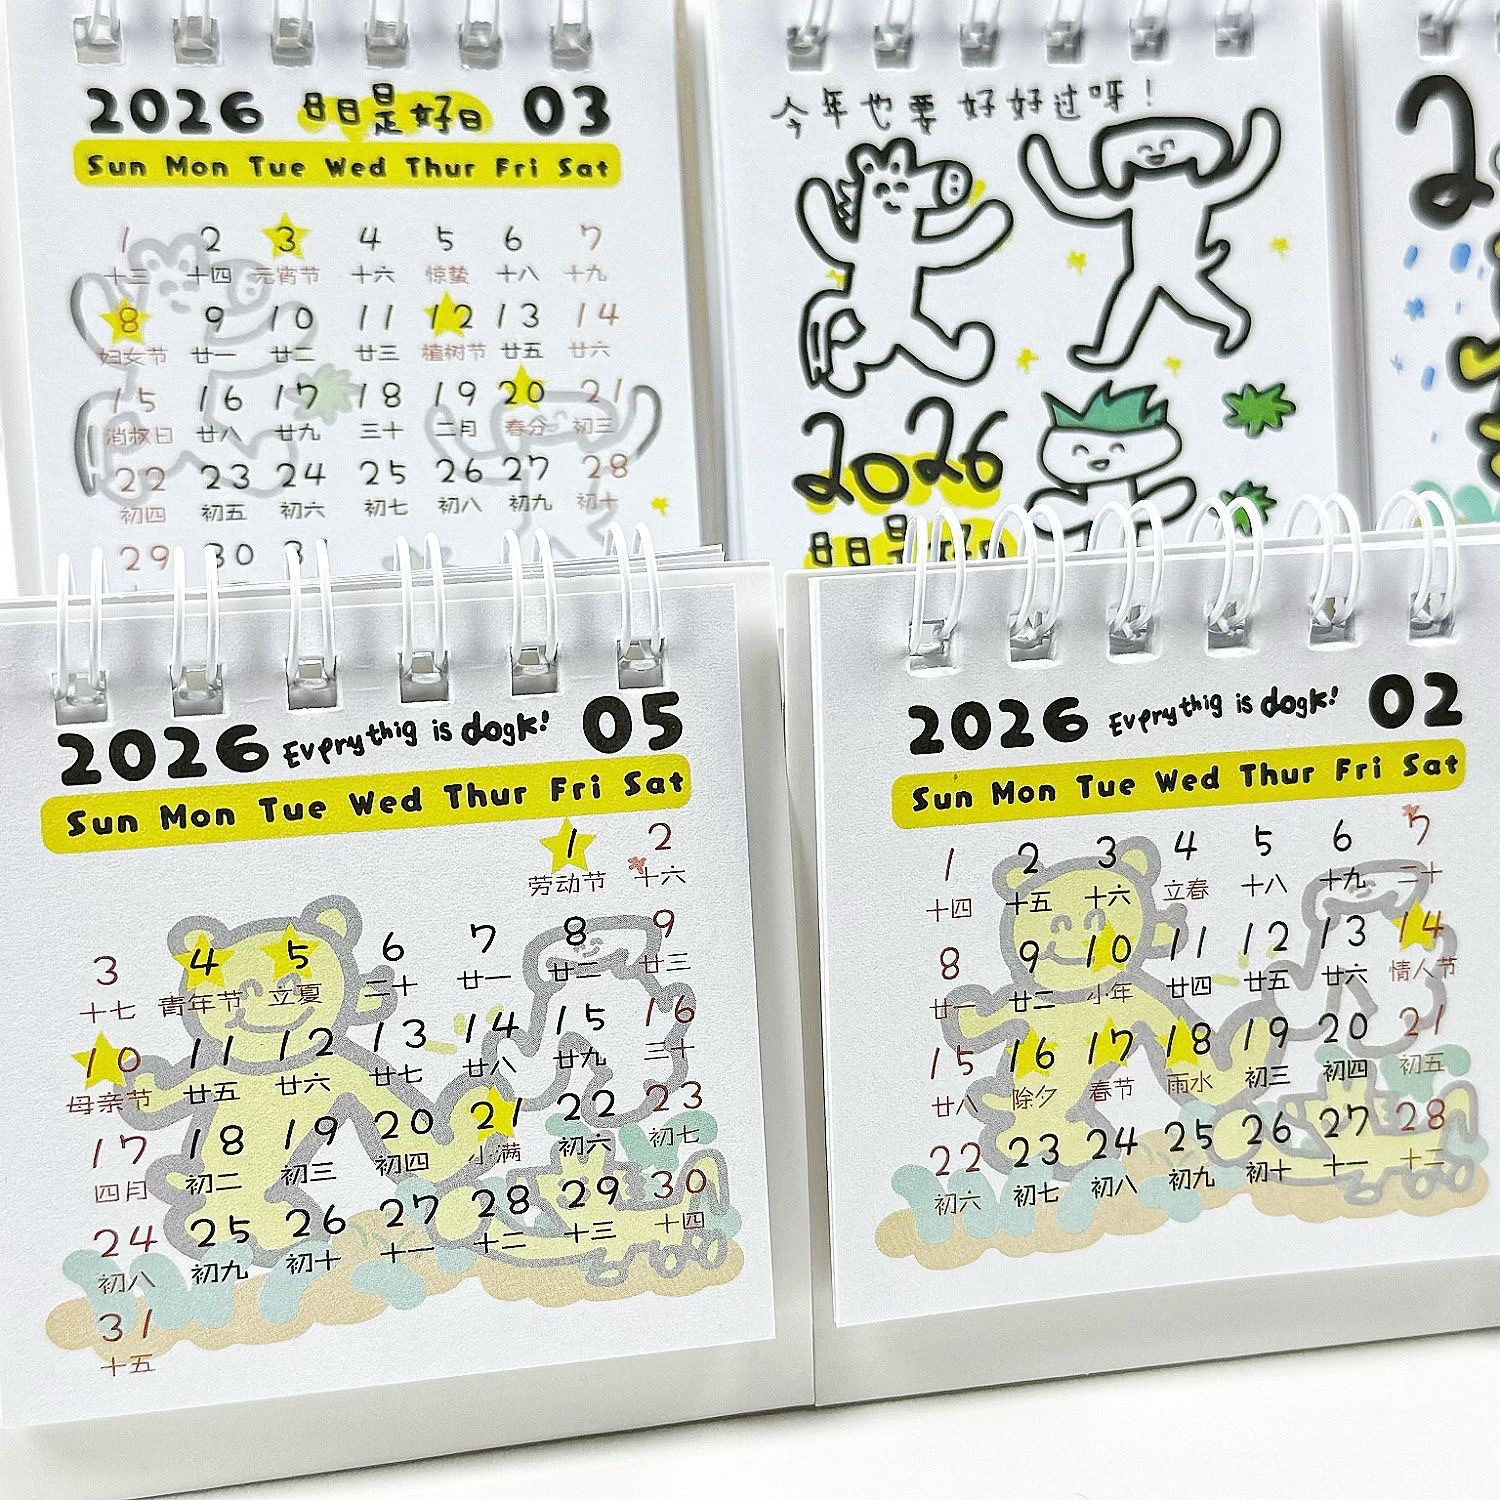 2026 日日是好日 03
Sun Mon Tue Wed Thur Fri Sat
1 2 3 4 5 6 7
十三 十四 元宵节 十六 惊蛰 十八 十九
8 9 10 11 12 13 14
妇女节 廿一 廿二 廿三 植树节 廿五 廿六
15 16 17 18 19 20 21
消权日 廿八 廿九 三十 二月 春分 初三
22 23 24 25 26 27 28
初四 初五 初六 初七 初八 初九 初十
29 30
今年也要好好过呀!
2026
日日是好日
2026 Evprythig is dogk! 05
Sun Mon Tue Wed Thur Fri Sat
1 2
劳动节 十六
3 4 5 6 7 8 9
十七 青年节 立夏 二十 廿一 廿二 廿三
10 11 12 13 14 15 16
母亲节 廿五 廿六 廿七 廿八 廿九 三十
17 18 19 20 21 22 23
四月 初二 初三 初四 小满 初六 初七
24 25 26 27 28 29 30
初八 初九 初十 十一 十二 十三 十四
31
十五
2026 Evprythig is dogk! 02
Sun Mon Tue Wed Thur Fri Sat
1 2 3 4 5 6 7
十四 十五 十六 立春 十八 十九 二十
8 9 10 11 12 13 14
廿一 廿二 小年 廿四 廿五 廿六 情人节
15 16 17 18 19 20 21
廿八 除夕 春节 雨水 初三 初四 初五
22 23 24 25 26 27 28
初六 初七 初八 初九 初十 十一 十二